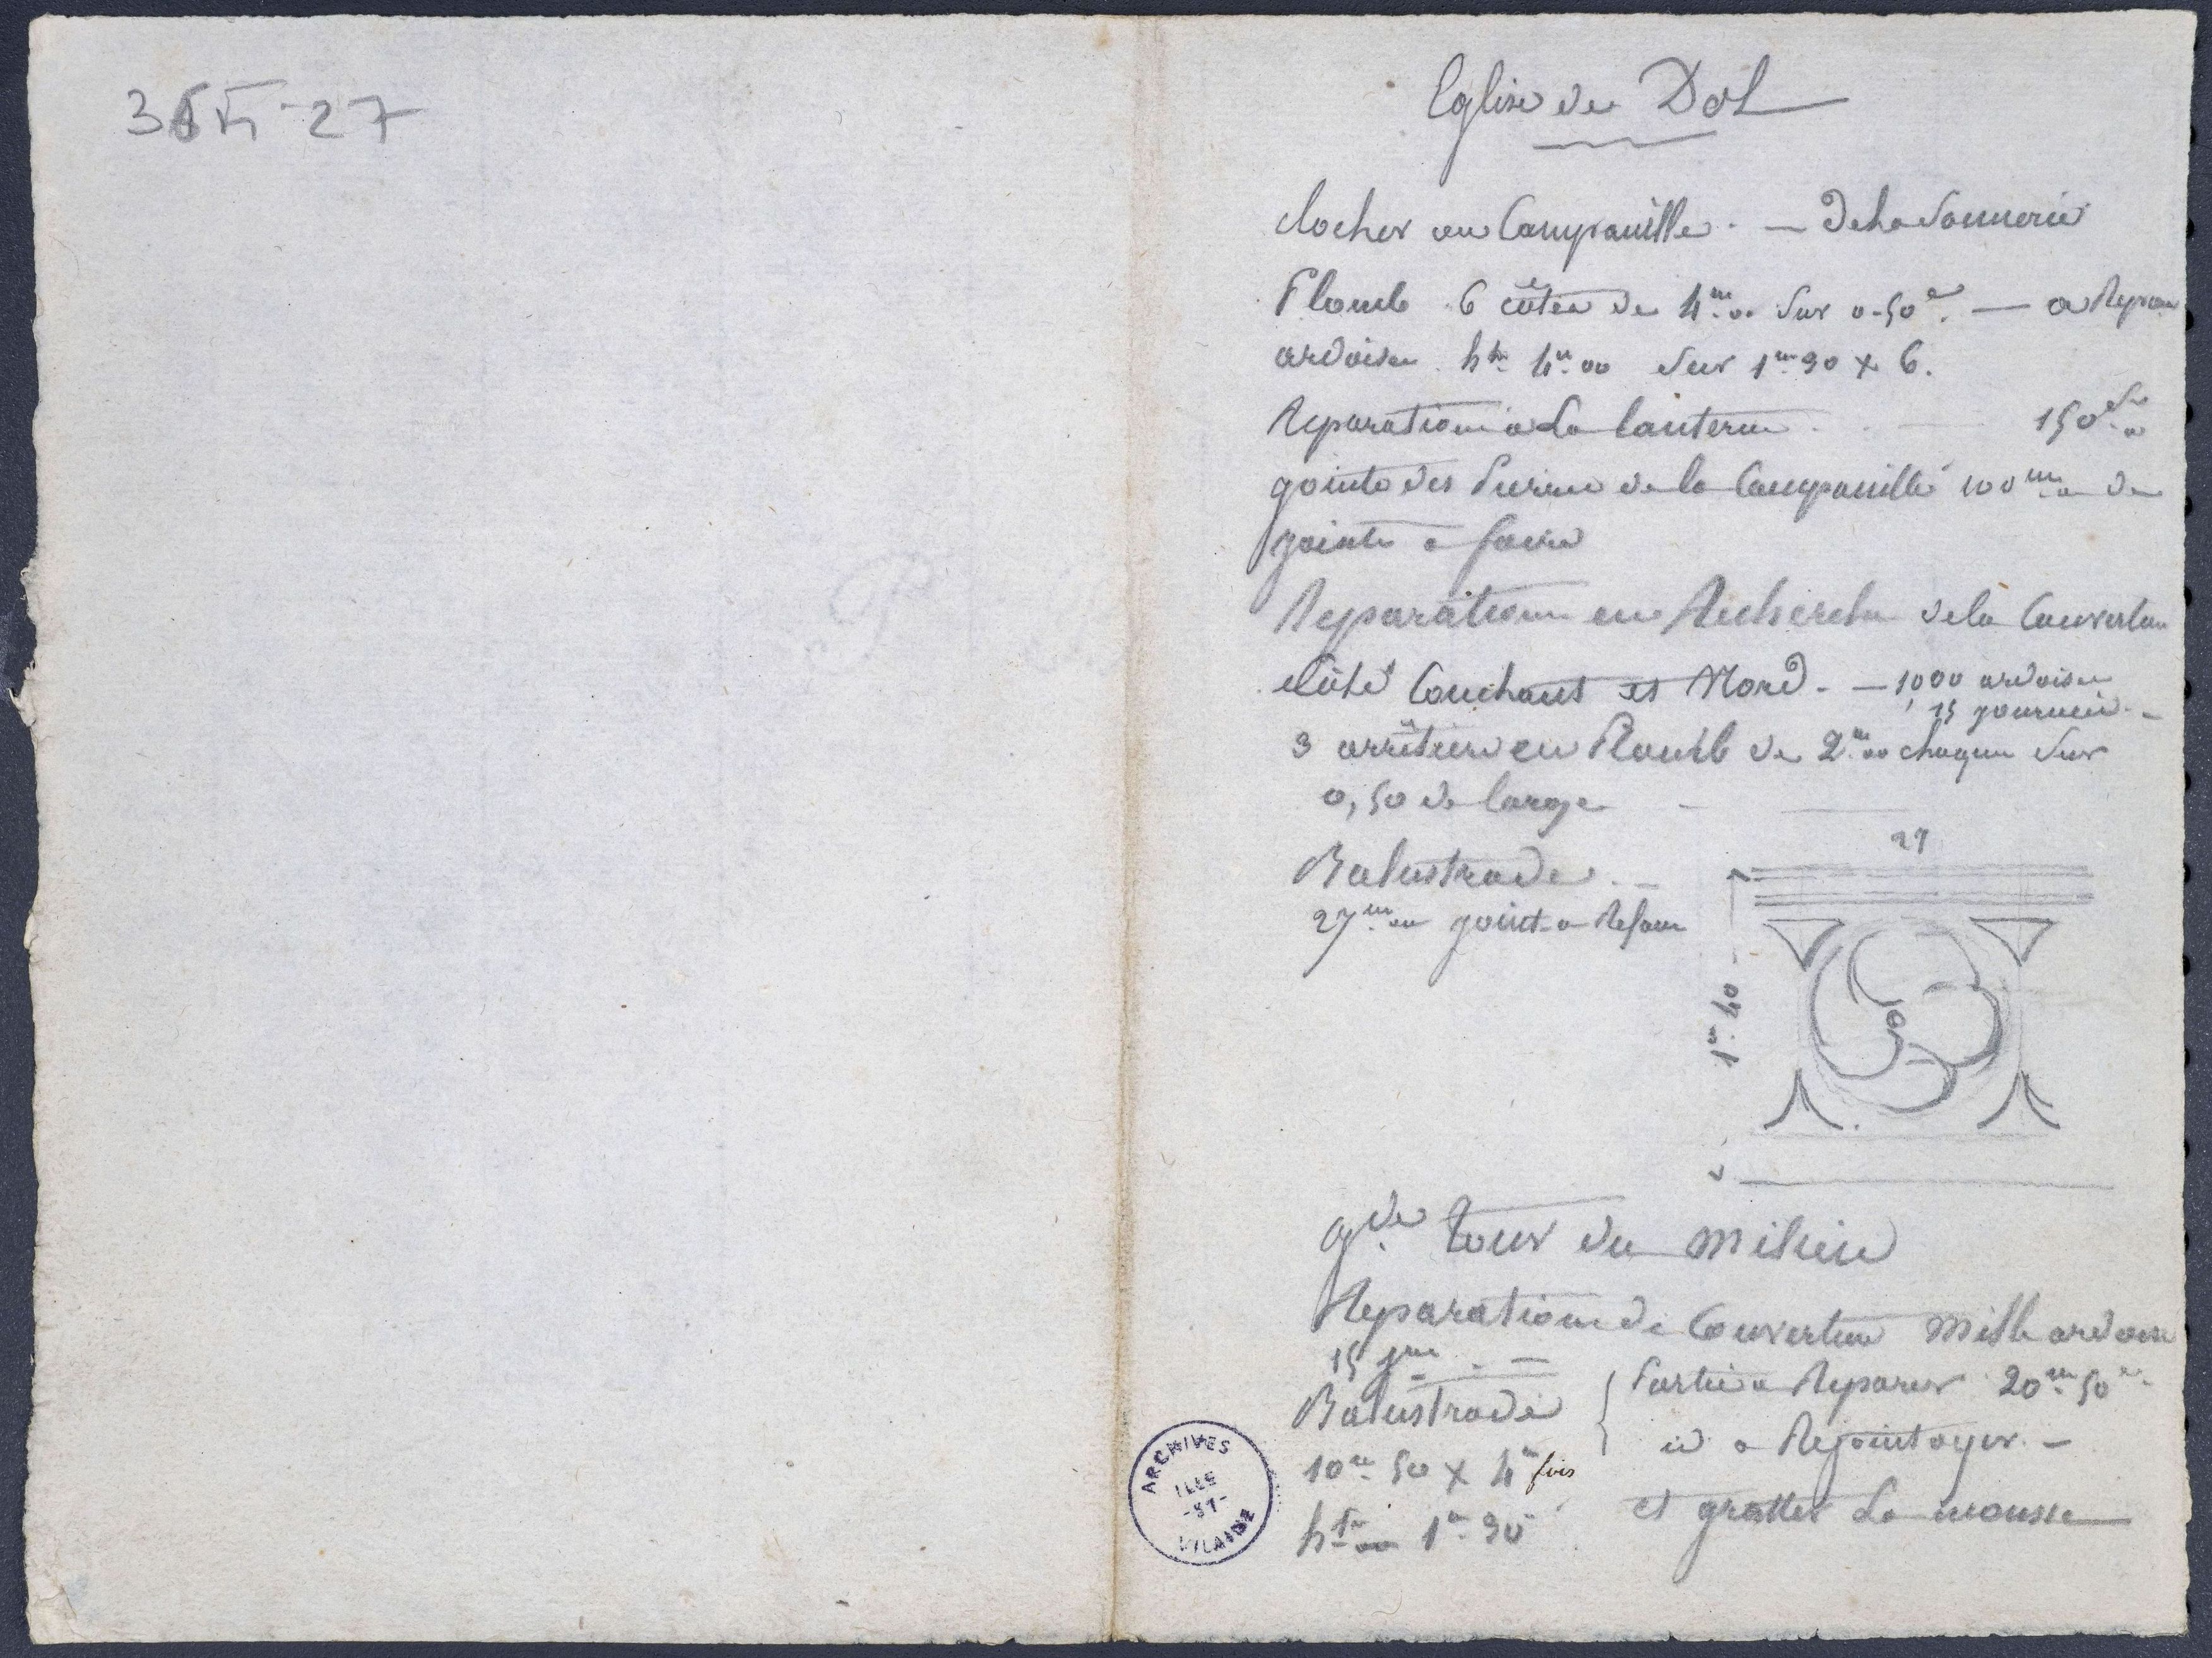 36 Fi 27
Eglise de Dol
clocher ou Campanille. — De la Sonnerie
Plomb 6 côtés de 4m.00 sur 0-50c. — a Repar
ardoise ht. 4m.00 sur 1m 90 x 6.
Reparation a La lanterne 150
joints des Pierre de la Campanille 100m de
joints a faire
Reparation en Recherche de la Couverture
Côté Couchant et Nord. — 1000 ardoise
15 journée. —
3 arrêtier en Plomb de 2m.00 chaque sur
0,50 de large —
Balustrade. —
27m.00 joint a Refaire
27
1m 40
gde Tour du milieu
Reparation de Couverture mille ardoise
15 jnée . =
Balustrade
10m 50 x 4 fois
ht 1m 90
Partie a Reparer 20m 50c
id a Rejointoyer. —
et gratter La mousse
ARCHIVES
ILLE
-ET-
VILAINE